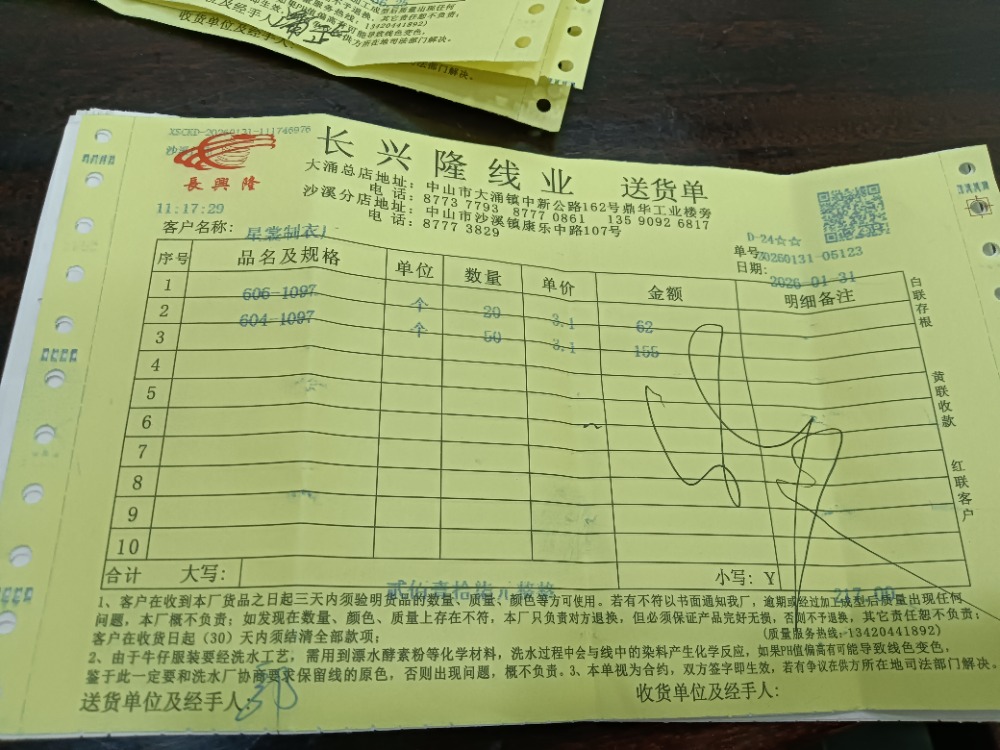 其它责任恕不负责;
13420441892)
可能导致线色变色,
供方所在地司法部门解决。
收货单位及经手人:
司法部门解决。
XSCKD-20260131-111746976
長興隆
长兴隆线业 送货单
大涌总店地址:中山市大涌镇中新公路162号鼎华工业楼旁
电话:8773 7793 8777 0861 135 9092 6817
沙溪分店地址:中山市沙溪镇康乐中路107号
电话:8777 3829
11:17:29
客户名称: 星棠制衣厂
D-24☆☆
单号: 20260131-05123
日期: 2026-01-31
序号 品名及规格 单位 数量 单价 金额 明细备注
1 606-1097 个 20 3.1 62
2 604-1097 个 50 3.1 155
3
4
5
6
7
8
9
10
合计 大写: 小写:Y 217.00
白联存根
黄联收款
红联客户
1、客户在收到本厂货品之日起三天内须验明货品的数量、质量、颜色等方可使用。若有不符以书面通知我厂,逾期或经过加工成型后质量出现任何
问题,本厂概不负责;如发现在数量、颜色、质量上存在不符,本厂只负责对方退换,但必须保证产品完好无损,否则不予退换,其它责任恕不负责;
客户在收货日起(30)天内须结清全部款项; (质量服务热线:13420441892)
2、由于牛仔服装要经洗水工艺,需用到漂水酵素粉等化学材料,洗水过程中会与线中的染料产生化学反应,如果PH值偏高有可能导致线色变色,
鉴于此一定要和洗水厂协商要求保留线的原色,否则出现问题,概不负责。3、本单视为合约,双方签字即生效,若有争议在供方所在地司法部门解决。
送货单位及经手人: 邓
收货单位及经手人: